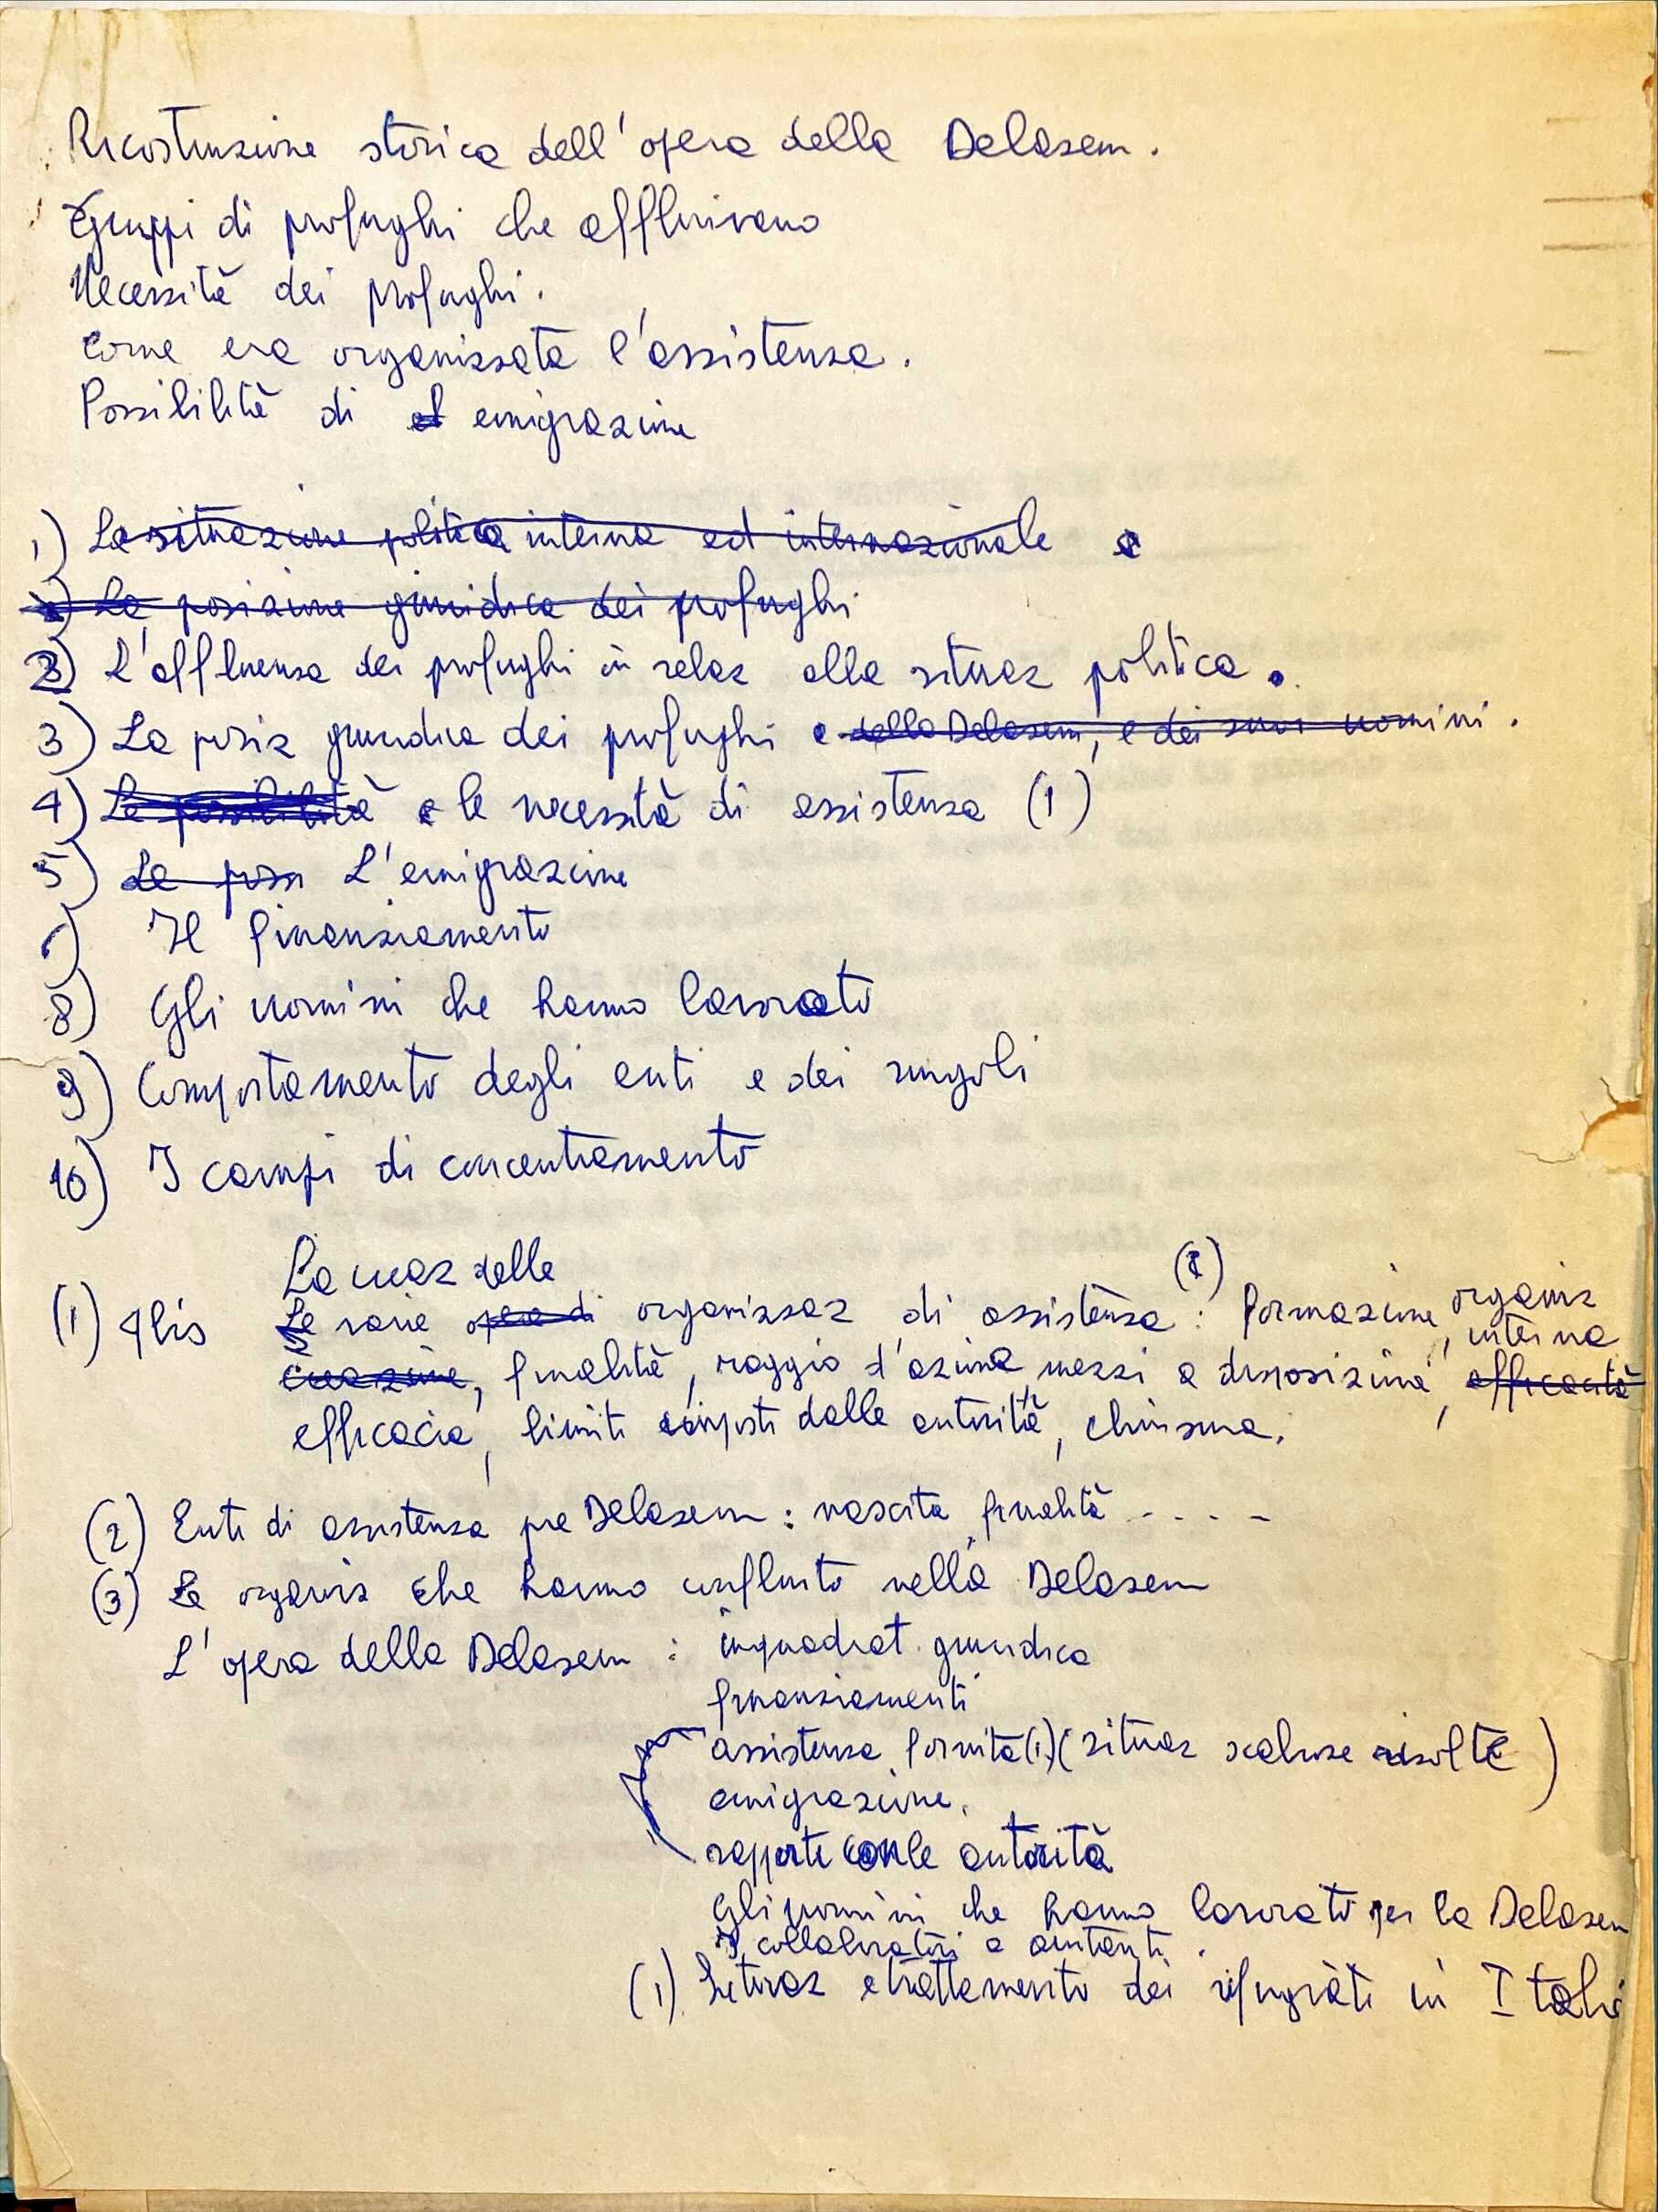 Ricostruzione storica dell'opera della Delasem.
Gruppi di profughi che affluivano
Necessità dei profughi.
Come era organizzata l'assistenza.
Possibilità di emigrazione
1) La situazione politica interna ed internazionale e
2) La posizione giuridica dei profughi
2) L'affluenza dei profughi in relaz alla situaz politica.
3) La posiz giuridica dei profughi e della Delasem, e dei suoi uomini.
4) Le possibilità e le necessità di assistenza (1)
5) Le poss L'emigrazione
) Il finanziamento
8) Gli uomini che hanno lavorato
9) Comportamento degli enti e dei singoli
10) I campi di concentramento
La creaz delle
(1)
(1) Le varie opere di organizzaz di assistenza: formazione, organiz interna
creazione, finalità, raggio d'azione, mezzi a disposizione, efficacità
efficacia, limiti imposti dalle autorità, chiusura.
(2) Enti di assistenza pre Delasem: nascita finalità .....
(3) Le organiz che hanno confluito nella Delasem
L'opera della Delasem: inquadrat. giuridica
finanziamenti
assistenza fornita (1) (situaz scabrose risolte)
emigrazione.
rapporti con le autorità
Gli uomini che hanno lavorato per la Delasem
I collaboratori e aiutanti.
(1) Situaz e trattamento dei rifugiati in Italia